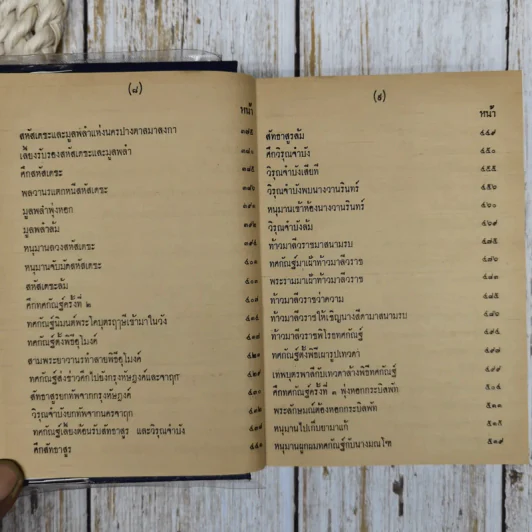 (๘)
หน้า
สหัสเดชะและมูลพลำแห่งนครปางตาลมาลงกา
เลี้ยงรับรองสหัสเดชะและมูลพลำ
ศึกสหัสเดชะ
พลวานรแตกหนีสหัสเดชะ
มูลพลำพุ่งหอก
มูลพลำล้ม
หนุมานลวงสหัสเดชะ
หนุมานจับมัดสหัสเดชะ
สหัสเดชะล้ม
ศึกทศกัณฐ์ครั้งที่ ๒
ทศกัณฐ์นิมนต์พระโคบุตรฤาษีเข้ามาในวัง
ทศกัณฐ์ตั้งพิธีอุโมงค์
สามพระยาวานรทำลายพิธีอุโมงค์
ทศกัณฐ์ส่งข่าวศึกไปยังกรุงหัษฎงค์และจารุก
สัทธาสูรยกทัพจากกรุงหัษฎงค์
วิรุณจำบังยกทัพจากนครจารุก
ทศกัณฐ์เลี้ยงต้อนรับสัทธาสูร และวิรุณจำบัง
ศึกสัทธาสูร
(๙)
หน้า
สัทธาสูรล้ม ๔๔๙
ศึกวิรุณจำบัง ๔๕๐
วิรุณจำบังเสียที ๔๕๕
วิรุณจำบังพบนางวานรินทร์ ๔๕๖
หนุมานเข้าห้องนางวานรินทร์ ๔๖๐
วิรุณจำบังล้ม ๔๖๙
ท้าวมาลีวราชมาสนามรบ ๔๗๕
ทศกัณฐ์มาเฝ้าท้าวมาลีวราช ๔๗๖
พระรามมาเฝ้าท้าวมาลีวราช ๔๘๓
ท้าวมาลีวราชว่าความ ๔๘๕
ท้าวมาลีวราชให้เชิญนางสีดามาสนามรบ ๔๘๖
ท้าวมาลีวราชพิโรธทศกัณฐ์ ๔๙๔
ทศกัณฐ์ตั้งพิธีเผารูปเทวดา ๔๙๗
เทพบุตรพาลีกับเทวดาล้างพิธีทศกัณฐ์ ๔๙๙
ศึกทศกัณฐ์ครั้งที่ ๓ พุ่งหอกกระบิลพัท ๕๐๔
พระลักษมณ์ต้องหอกกระบิลพัท ๕๑๑
หนุมานไปเก็บยามาแก้ ๕๑๕
หนุมานผูกผมทศกัณฐ์กับนางมณโฑ ๕๑๙